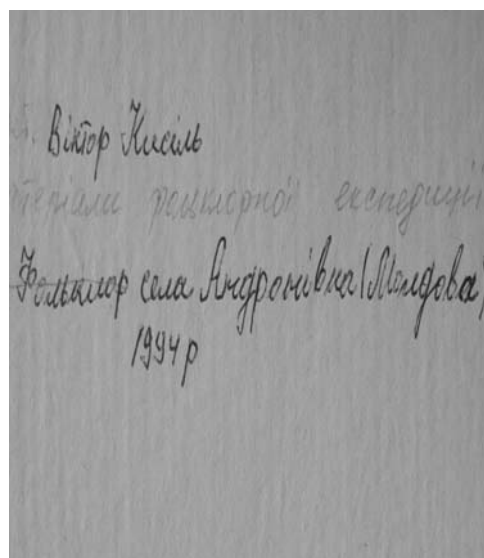 Віктор Кисіль
фольклорної експедиції
Фольклор села Андронівка (Молдова)
1994 р